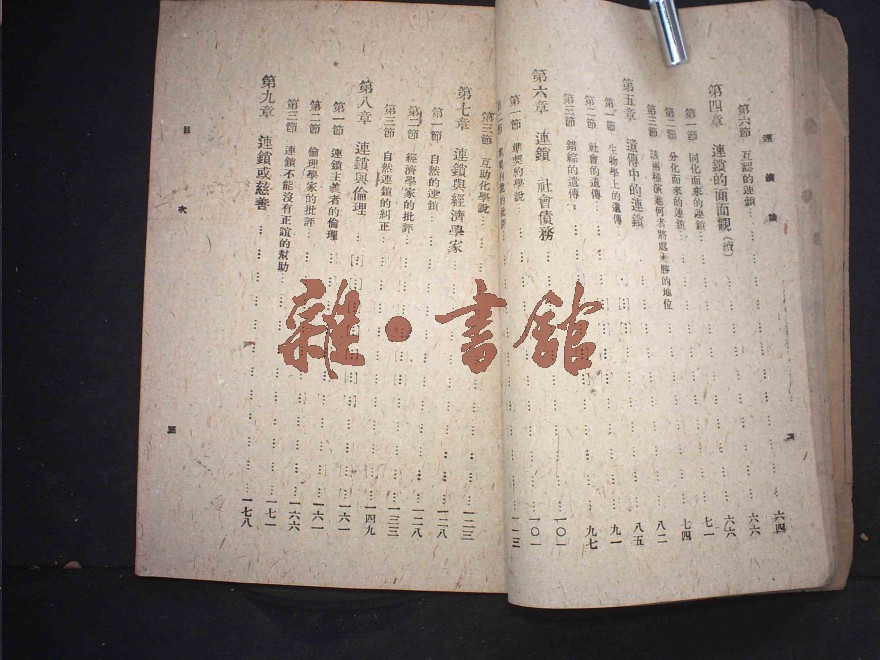 連鎖論
第六節 互認的連鎖 六四
第四章 連鎖的面面觀(續) 六六
第一節 同化而來的連鎖 六六
第二節 分化而來的連鎖 七一
第三節 該兩種演進何者將處勝的地位 七四
第五章 遺傳中的連鎖 八二
第一節 生物學上的遺傳 八五
第二節 社會的遺傳 九一
第三節 錯綜的遺傳 九七
第六章 連鎖 社會債務 一〇一
第一節 準契約學說 一〇一
的批評 一一三
第三節 互助化學說 一二三
第七章 連鎖與經濟學家 一二八
第一節 自然的連鎖 一二八
第二節 經濟學家的批評 一三三
第三節 自然連鎖的糾正 一四九
第八章 連鎖與倫理 一六一
第一節 連鎖主義者的倫理 一六一
第二節 倫理學家的批評 一六六
第三節 連鎖不能沒有正誼的幫助 一七一
第九章 連鎖或慈善 一七八
目次
三
雜·書館